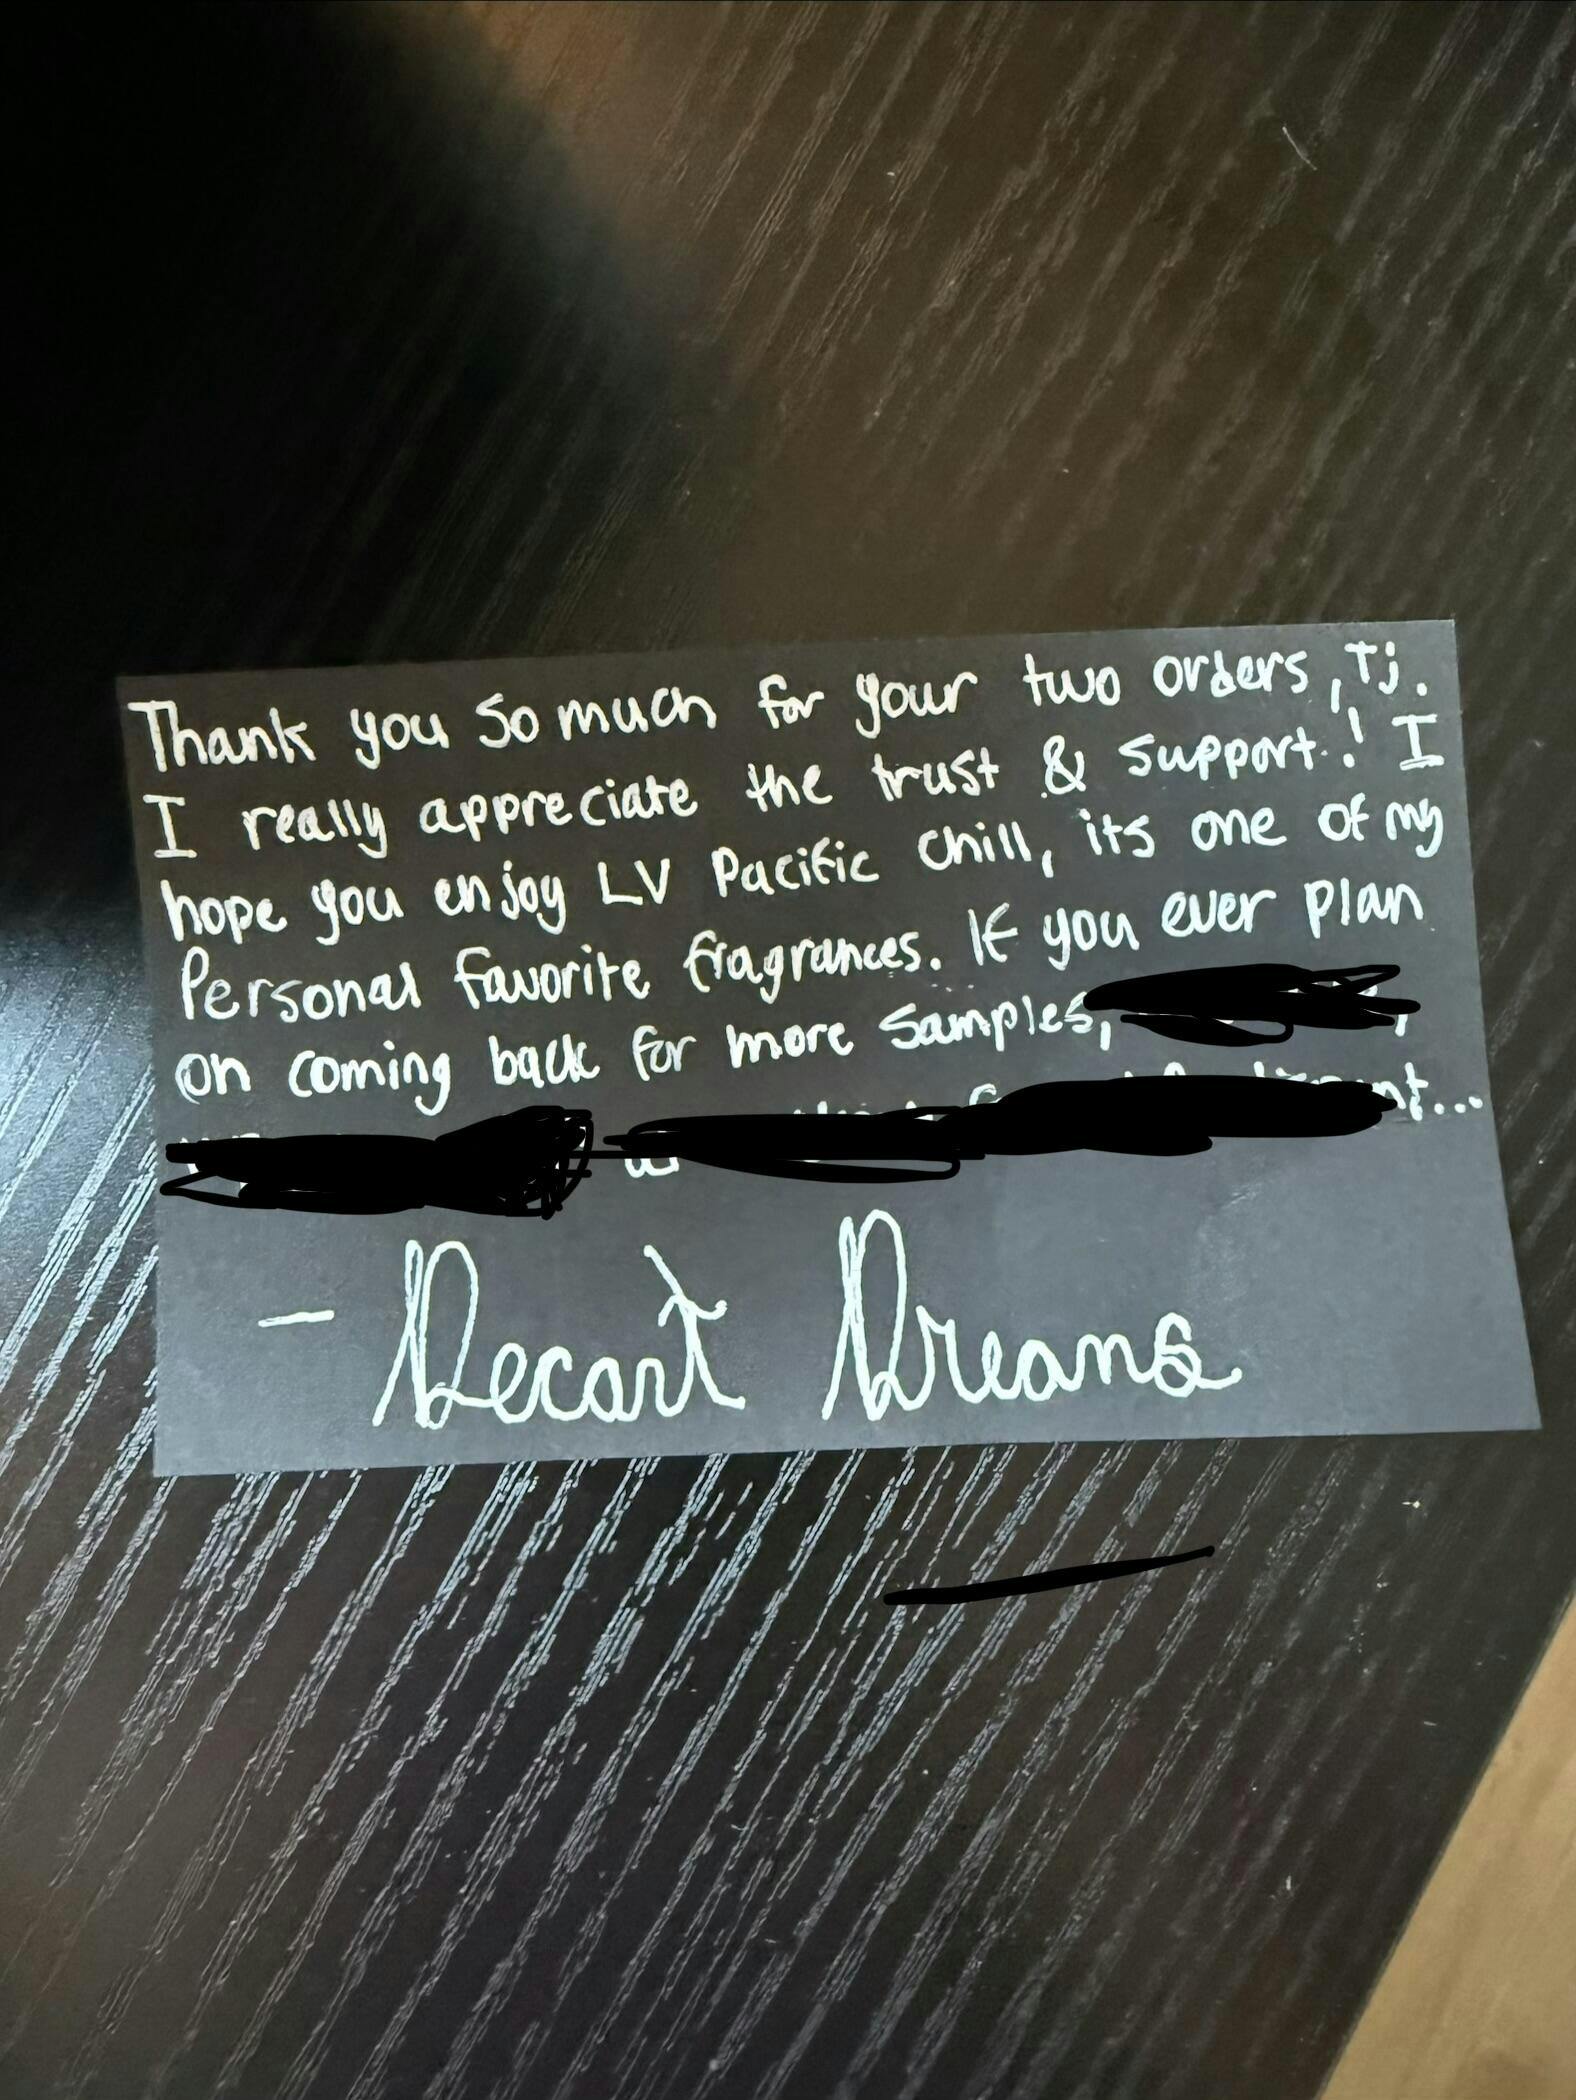 Thank you so much for your two orders, Tj.
I really appreciate the trust & support! I
hope you enjoy LV Pacific Chill, its one of my
Personal favorite fragrances. If you ever plan
on coming back for more samples,
- Decant Dreams